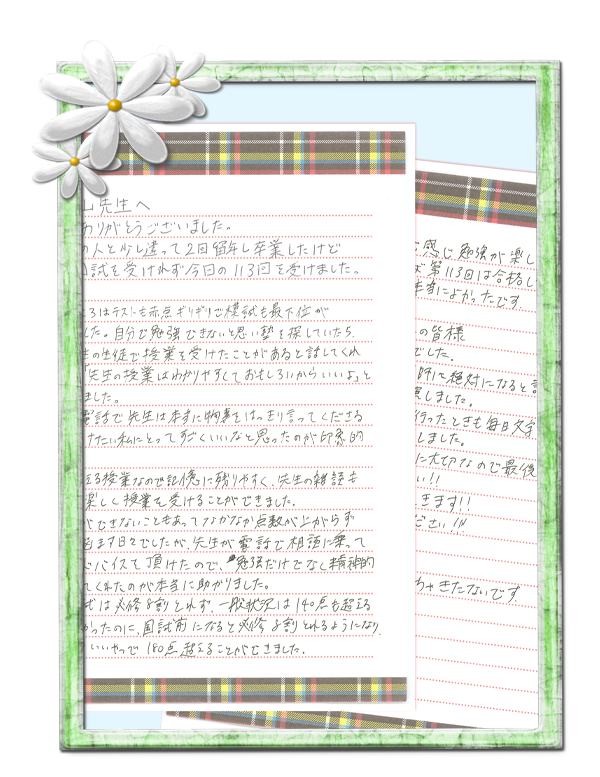 先生へ
ありがとうございました。
人と少し違って2回留年し卒業したけど
試を受けれず今回の113回を受けました。
ろはテストも赤点ギリギリで模試も最下位が
した。自分で勉強できないと思い塾を探していたら
の生徒で授業を受けたことがあると話してくれ
「先生の授業はわかりやすくておもしろいからいいよ」と
ました。
電話で先生は本当に物事をはっきり言ってくださる
けたい私にとってすごくいいなと思ったのが印象的
える授業なので記憶に残りやすく、先生の雑談も
楽しく授業を受けることができました。
ができないこともあってなかなか点数が上がらず
悩ます日々でしたが、先生が電話で相談に乗って
バイスて頂けたので、勉強だけでなく精神的
てくれたのが本当に助かりました。
試は必修8割とれず、一般状況は140点も超える
かったのに、国試前になると必修8割とれるようになり、
いいやつで180点超えることができました。
感じ勉強が楽し
第113回は合格し
本当によかったです。
の皆様
でした。
師に絶対になると
しました。
行ったときも毎日
しました。
に大切なので最後
い!!
きます!!
ださい!!!
ちゃきたないです。